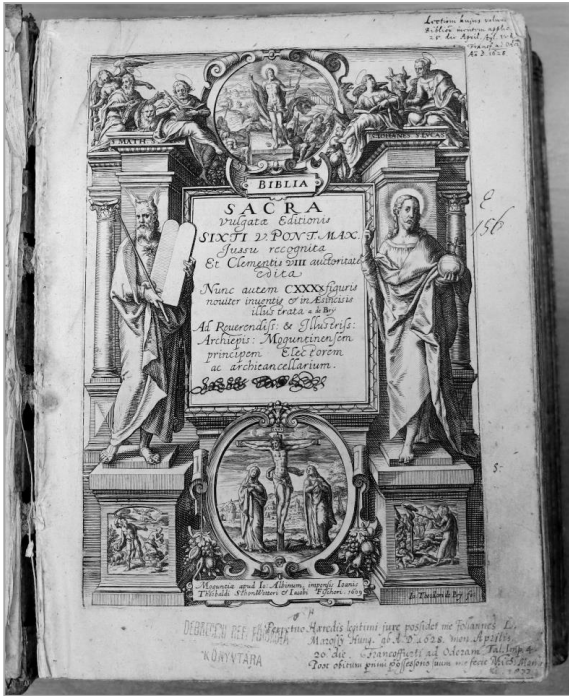 Lectiam hujus
Bibliæ
20 die April.
Aō D. 1628
S MATH
IOHANES S LVCAS
BIBLIA
SACRA
Vulgatæ Editionis
SIXTI V. PONT. MAX.
Jussu recognita
Et Clementis VIII auctoritate
edita
Nunc autem CXXXX figuris
noviter inventis & in Æs incisis
illustrata a de Bry
Ad Reverendiss: & Illustriss:
Archiepis: Moguntinensem
principem Electorem
ac archicancellarium.
E
156
5.
Moguntiæ apud Io Albinum, impensis Ioanis
Theobaldi SchonWetteri & Iacobi Fischeri. 1609
Io Theodori de Bry fec
Perpetuo Hæredis legitimi jure possidet me Johannes
Hung. Ab A. D. 1628. men. Aprilis
20 die. Francoffurti ad Oderam Tal. Imp. 4
Post obitum primi possessoris suum me fecit
DEBRECENI REF. FŐISKOLA
KÖNYVTÁRA